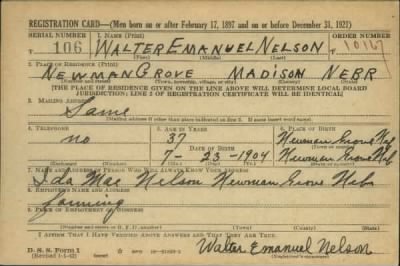 REGISTRATION CARD—(Men born on or after February 17, 1897 and on or before December 31, 1921)
SERIAL NUMBER 1. NAME (Print) ORDER NUMBER
T 106 WALTER EMANUEL NELSON 10167
(First) (Middle) (Last)
2. PLACE OF RESIDENCE (Print)
NEWMAN GROVE MADISON NEBR
(Town, township, village, or city) (County) (State)
[THE PLACE OF RESIDENCE GIVEN ON THE LINE ABOVE WILL DETERMINE LOCAL BOARD
JURISDICTION; LINE 2 OF REGISTRATION CERTIFICATE WILL BE IDENTICAL]
3. MAILING ADDRESS
Same
[Mailing address if other than place indicated on line 2. If same insert word same]
4. TELEPHONE 5. AGE IN YEARS 6. PLACE OF BIRTH
no 37 Newman Grove Neb
DATE OF BIRTH (Town or county)
7- 23 -1904 Newman Grove Neb
(Exchange) (Number) (Mo.) (Day) (Yr.) (State or country)
7. NAME AND ADDRESS OF PERSON WHO WILL ALWAYS KNOW YOUR ADDRESS
Ida Mae Nelson Newman Grove Neb
8. EMPLOYER'S NAME AND ADDRESS
farming
9. PLACE OF EMPLOYMENT OR BUSINESS
(Number and street or R. F. D. number) (Town) (County) (State)
I AFFIRM THAT I HAVE VERIFIED ABOVE ANSWERS AND THAT THEY ARE TRUE.
D. S. S. Form 1
(Revised 1-1-42) (over)
Walter Emanuel Nelson
(Registrant's signature)